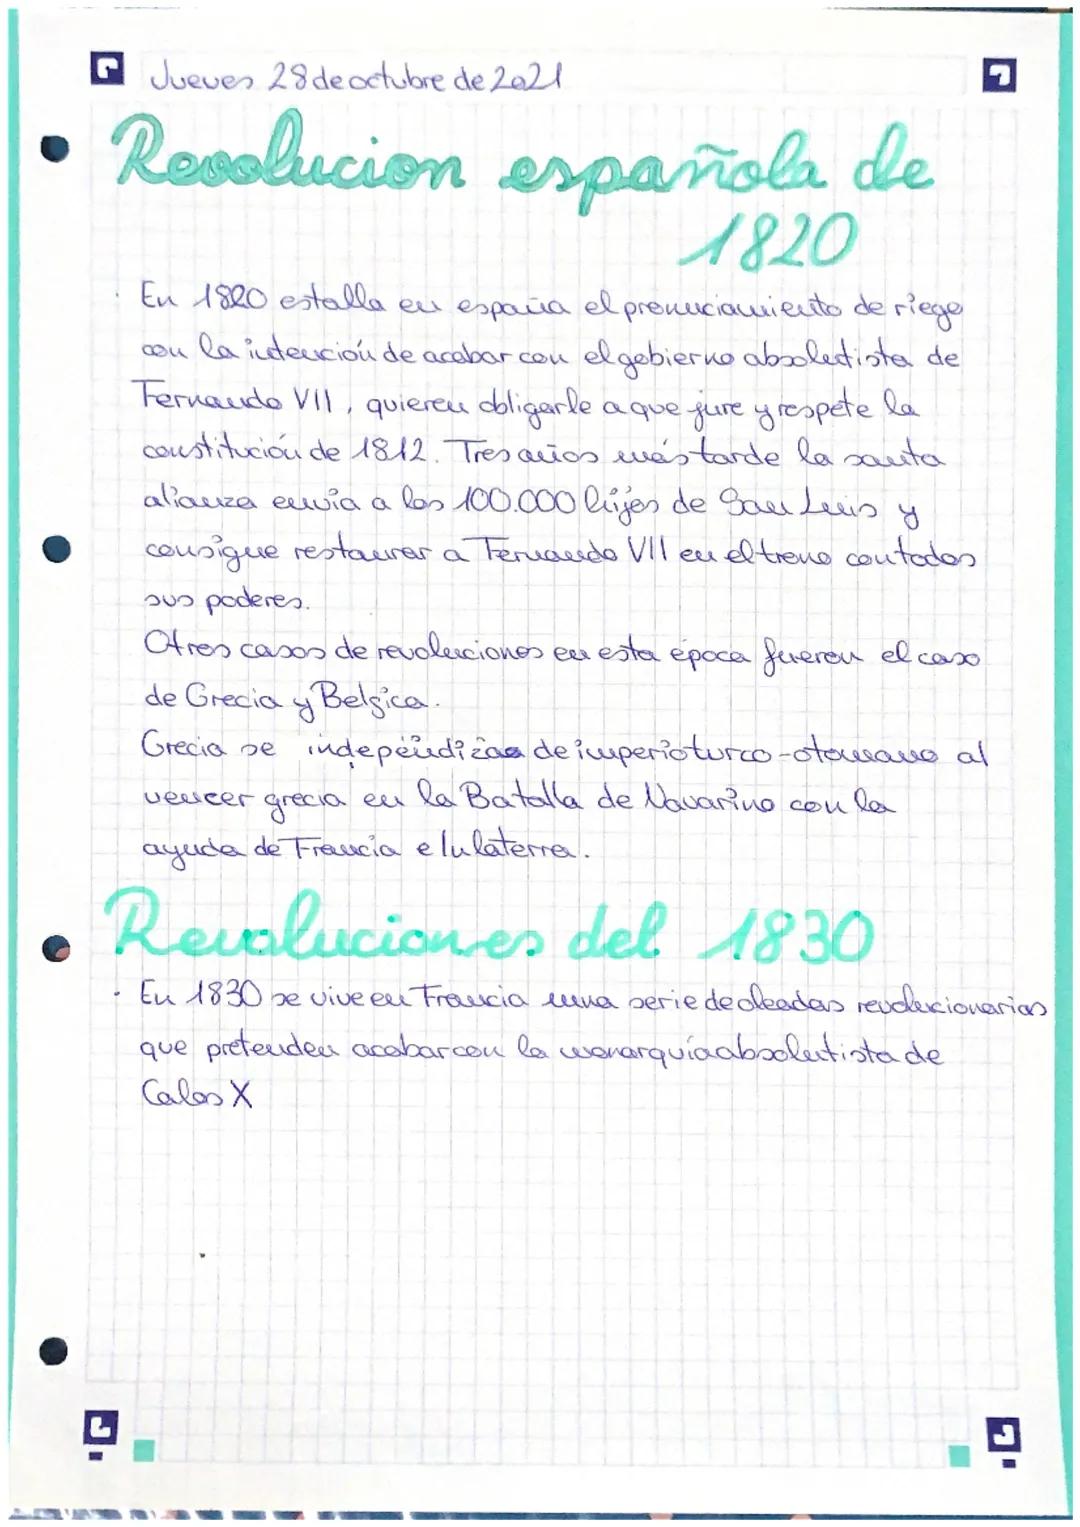 Jueves 28 de octubre de 2021
Revolucion española de
1820
· En 1820 estalla en españa el pronuciamiento de riego
con la intención de acabar con el gobierno absolutista de
Fernando VII, quieren obligarle a que jure y respete la
constitución de 1812. Tres años más tarde la santa
alianza envía a los 100.000 hijos de San Luis y
consigue restaurar a Fernando VII en el trono con todos
sus poderes.
Otros casos de revoluciones en esta época fueron el caso
de Grecia y Belgica.
Grecia se independiza de imperio turco-otomano al
vencer grecia en la Batalla de Navarino con la
ayuda de Francia e Inlaterra.
Revoluciones del 1830
· En 1830 se vive en Francia una serie de oleadas revolucionarias
que pretenden acabar con la monarquía absolutista de
Calos X